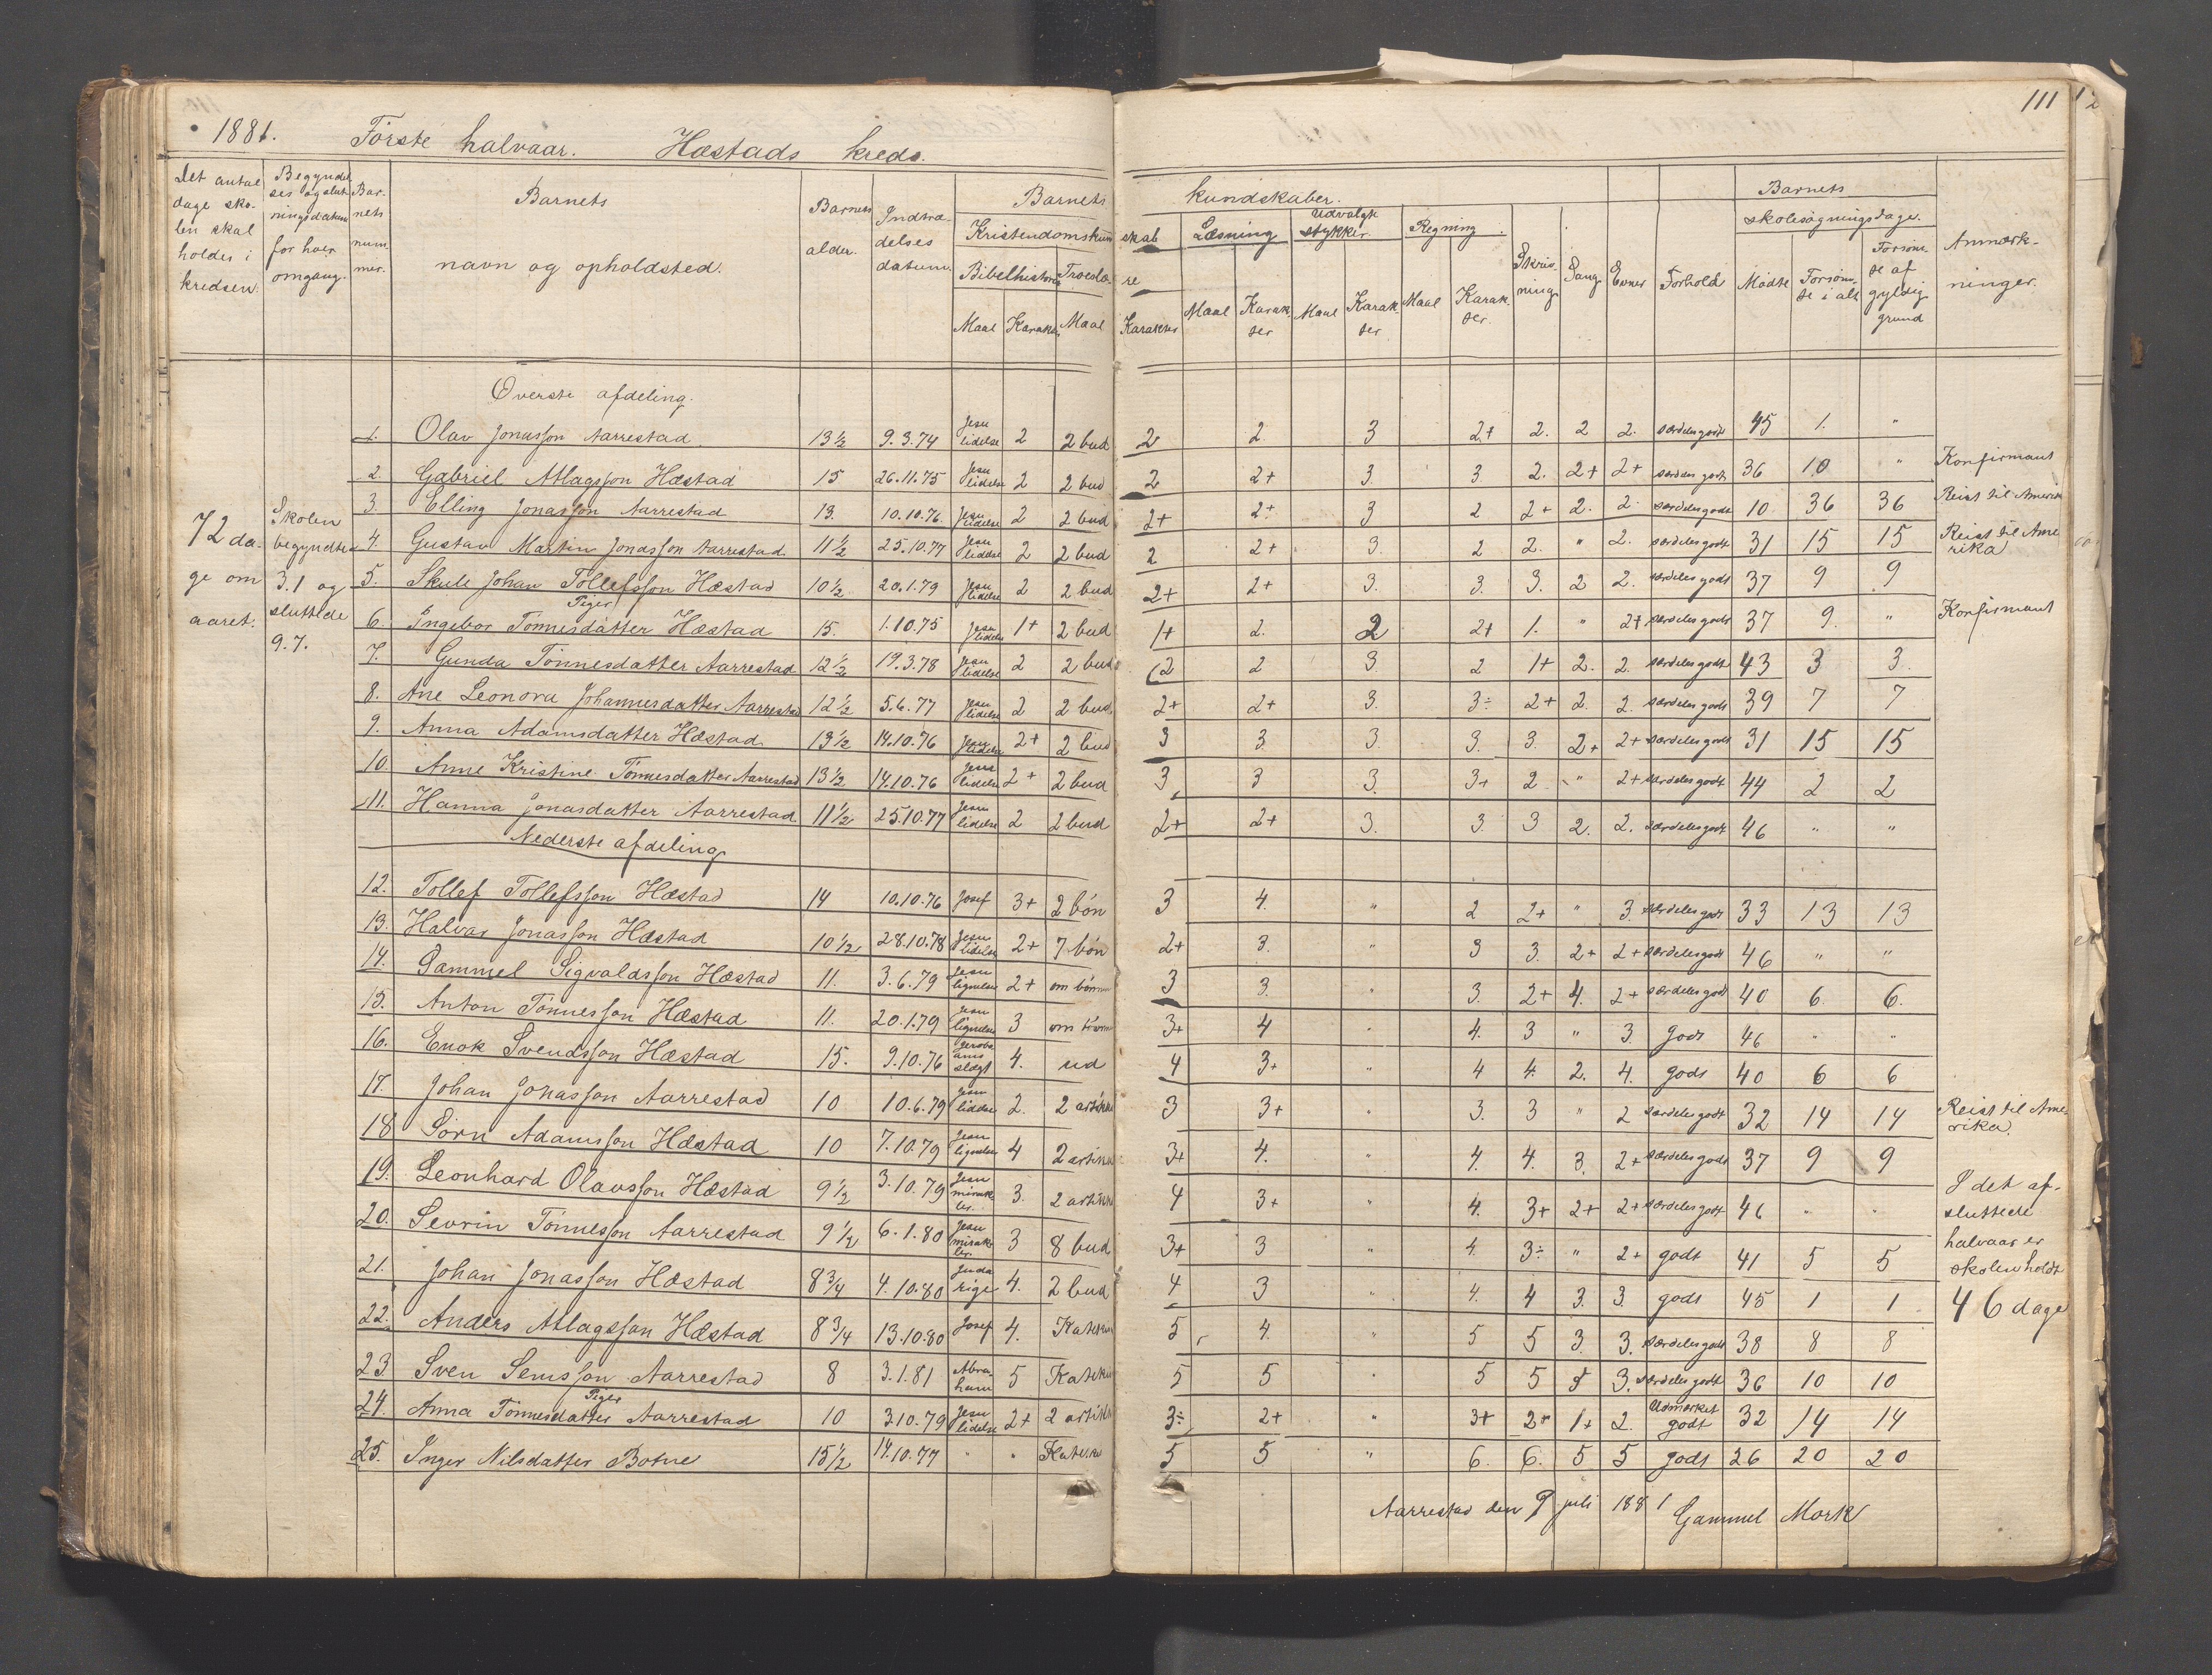 111
1881. Første halvaar. Hæstads kreds.
Det antal dage skolen skal holdes i kredsen.
Begyndelses og slutningsdatum for hver omgang.
Barnets nummer.
Barnets navn og opholdsted.
Barnets alder.
Indtrædelses datum.
Barnets kundskaber.
Kristendomskundskab
Bibelhistorie Troeslære
Maal Karakter Maal Karakter
Læsning Maal Karakter
Udvalgte stykker. Maal Karakter
Regning. Maal Karakter.
Skrivning Sang Evner Forhold
Barnets skolesøgningsdage.
Mødte Forsømte i alt Forsømte af gyldig grund
Anmærkninger.
72 dage om aaret.
Skolen begyndte 3.1 og sluttede 9.7.
Øverste afdeling.
1. Olav Jonasson Aarrestad. 13½ 9.3.74 Jesu lidelse 2 2 bud 2 2 3 2+ 2. 2 2. særdeles godt 45 1. "
2. Gabriel Atlagsson Hæstad 15 26.11.75 Jesu lidelse 2 2 bud 2 2+ 3. 3 2. 2+ 2+ særdeles godt 36 10 " Konfirmant
3. Elling Jonasson Aarrestad 13. 10.10.76. Jesu lidelse 2 2 bud 2+ 2+ 3 2 2+ 2. 2. særdeles godt 10. 36 36 Reist til Amerika
4. Gustav Martin Jonasson Aarrestad. 11½ 25.10.77 Jesu lidelse 2 2 bud 2 2+ 3. 2 2. " 2. særdeles godt 31 15 15 Reist til Amerika
5. Skule Johan Tollefsson Hæstad 10½ 20.1.79 Jesu lidelse 2 2 bud 2+ 2+ 3. 3. 3. 2 2. særdeles godt 37 9 9
Piger
6. Ingebor Tønnesdatter Hæstad 15. 1.10.75 Jesu lidelse 1+ 2 bud 1+ 2. 2 2+ 1. " 2+ særdeles godt 37 9. " Konfirmant
7. Gunda Tønnesdatter Aarrestad 12½ 19.3.78 Jesu lidelse 2 2 bud 2 2 3. 2 1+ 2. 2. særdeles godt 43 3 3.
8. Ane Leonora Johannesdatter Aarrestad 12½ 5.6.77 Jesu lidelse 2 2 bud 2+ 2+ 3. 3÷ 2+ 2. 2. særdeles godt 39 7 7
9. Anna Adamsdatter Hæstad 13½ 14.10.76 Jesu lidelse 2+ 2 bud 3 3. 3. 3. 3. 2+ 2+ særdeles godt 31 15 15
10. Anne Kristine Tønnesdatter Aarrestad 13½ 14.10.76 Jesu lidelse 2+ 2 bud 3 3 3. 3+ 2. " 2+ særdeles godt 44 2 2
11. Hanna Jonasdatter Aarrestad 11½ 25.10.77 Jesu lidelse 2 2 bud 2+ 2+ 3. 3. 3 2. 2. særdeles godt 46 " "
Nederste afdeling
12. Tollef Tollefsson Hæstad 14 10.10.76 Josef 3+ 2 bøn 3 4. " 2 2+ " 3. særdeles godt 33 13 13
13. Halvar Jonasson Hæstad 10½ 28.10.78 Jesu lidelse 2+ 7 bøn 2+ 3. " 3 3. 2+ 2+ særdeles godt 46 " "
14. Gammel Sigvaldsson Hæstad 11. 3.6.79 Jesu lignelser 2+ om bønnen 3 3. " 3. 2+ 4. 2+ særdeles godt 40 6. 6.
15. Anton Tønnesson Hæstad 11. 20.1.79 Jesu lignelser 3 om 3+ 4 " 4. 3 " 3. godt 46 " "
16. Enok Svendsson Hæstad 15. 9.10.76 Jeroboams slægt 4. ud 4 3+ " 4 4. 2. 4. godt 40 6 6
17. Johan Jonasson Aarrestad 10 10.6.79 Jesu lidelse 2. 2 artikkel 3 3+ " 3. 3 " 2 særdeles godt 32 14 14 Reist til Amerika.
18 Sørn Adamsson Hæstad 10 7.10.79 Jesu lignelser 4 2 artikkel 3+ 4. " 4. 4. 3. 2+ særdeles godt 37 9 9
19. Leonhard Olavsson Hæstad 9½ 3.10.79 Jesu mirakler. 3. 2 artikkel 4 3+ " 4. 3+ 2+ 2+ særdeles godt 46 " "
20. Sevrin Tønnesson Aarrestad 9½ 6.1.80 Jesu mirakler. 3 8 bud 3+ 3 " 4. 3÷ " 2+ godt 41 5 5
21. Johan Jonasson Hæstad 8¾ 4.10.80 Juda rige 4. 2 bud 4 3 " 4. 4 3. 3. godt 45 1 1
22. Anders Atlagsson Hæstad 8¾ 13.10.80 Josef 4. Katekis 5 4. " 5 5 3. 3. særdeles godt 38 8 8
23. Sven Semsson Aarrestad 8 3.1.81 Abraham 5 Katekis 5 5 " 5 5 5 3. særdeles godt 36 10 10
Piger
24. Anna Tønnesdatter Aarrestad 10 3.10.79 Jesu lidelse 2+ 2 artikkel 3÷ 2+ " 3+ 2+ 1+ 2. Udmærket godt 32 14 14
25. Inger Nilsdatter Botne 15½ 14.10.77 " " Katekis 5 5 " 6. 6. 5 5 godt 26 20 20
I det afsluttede halvaar er skolen holdt 46 dage
Aarrestad den 9 juli 1881 Gammel Mork